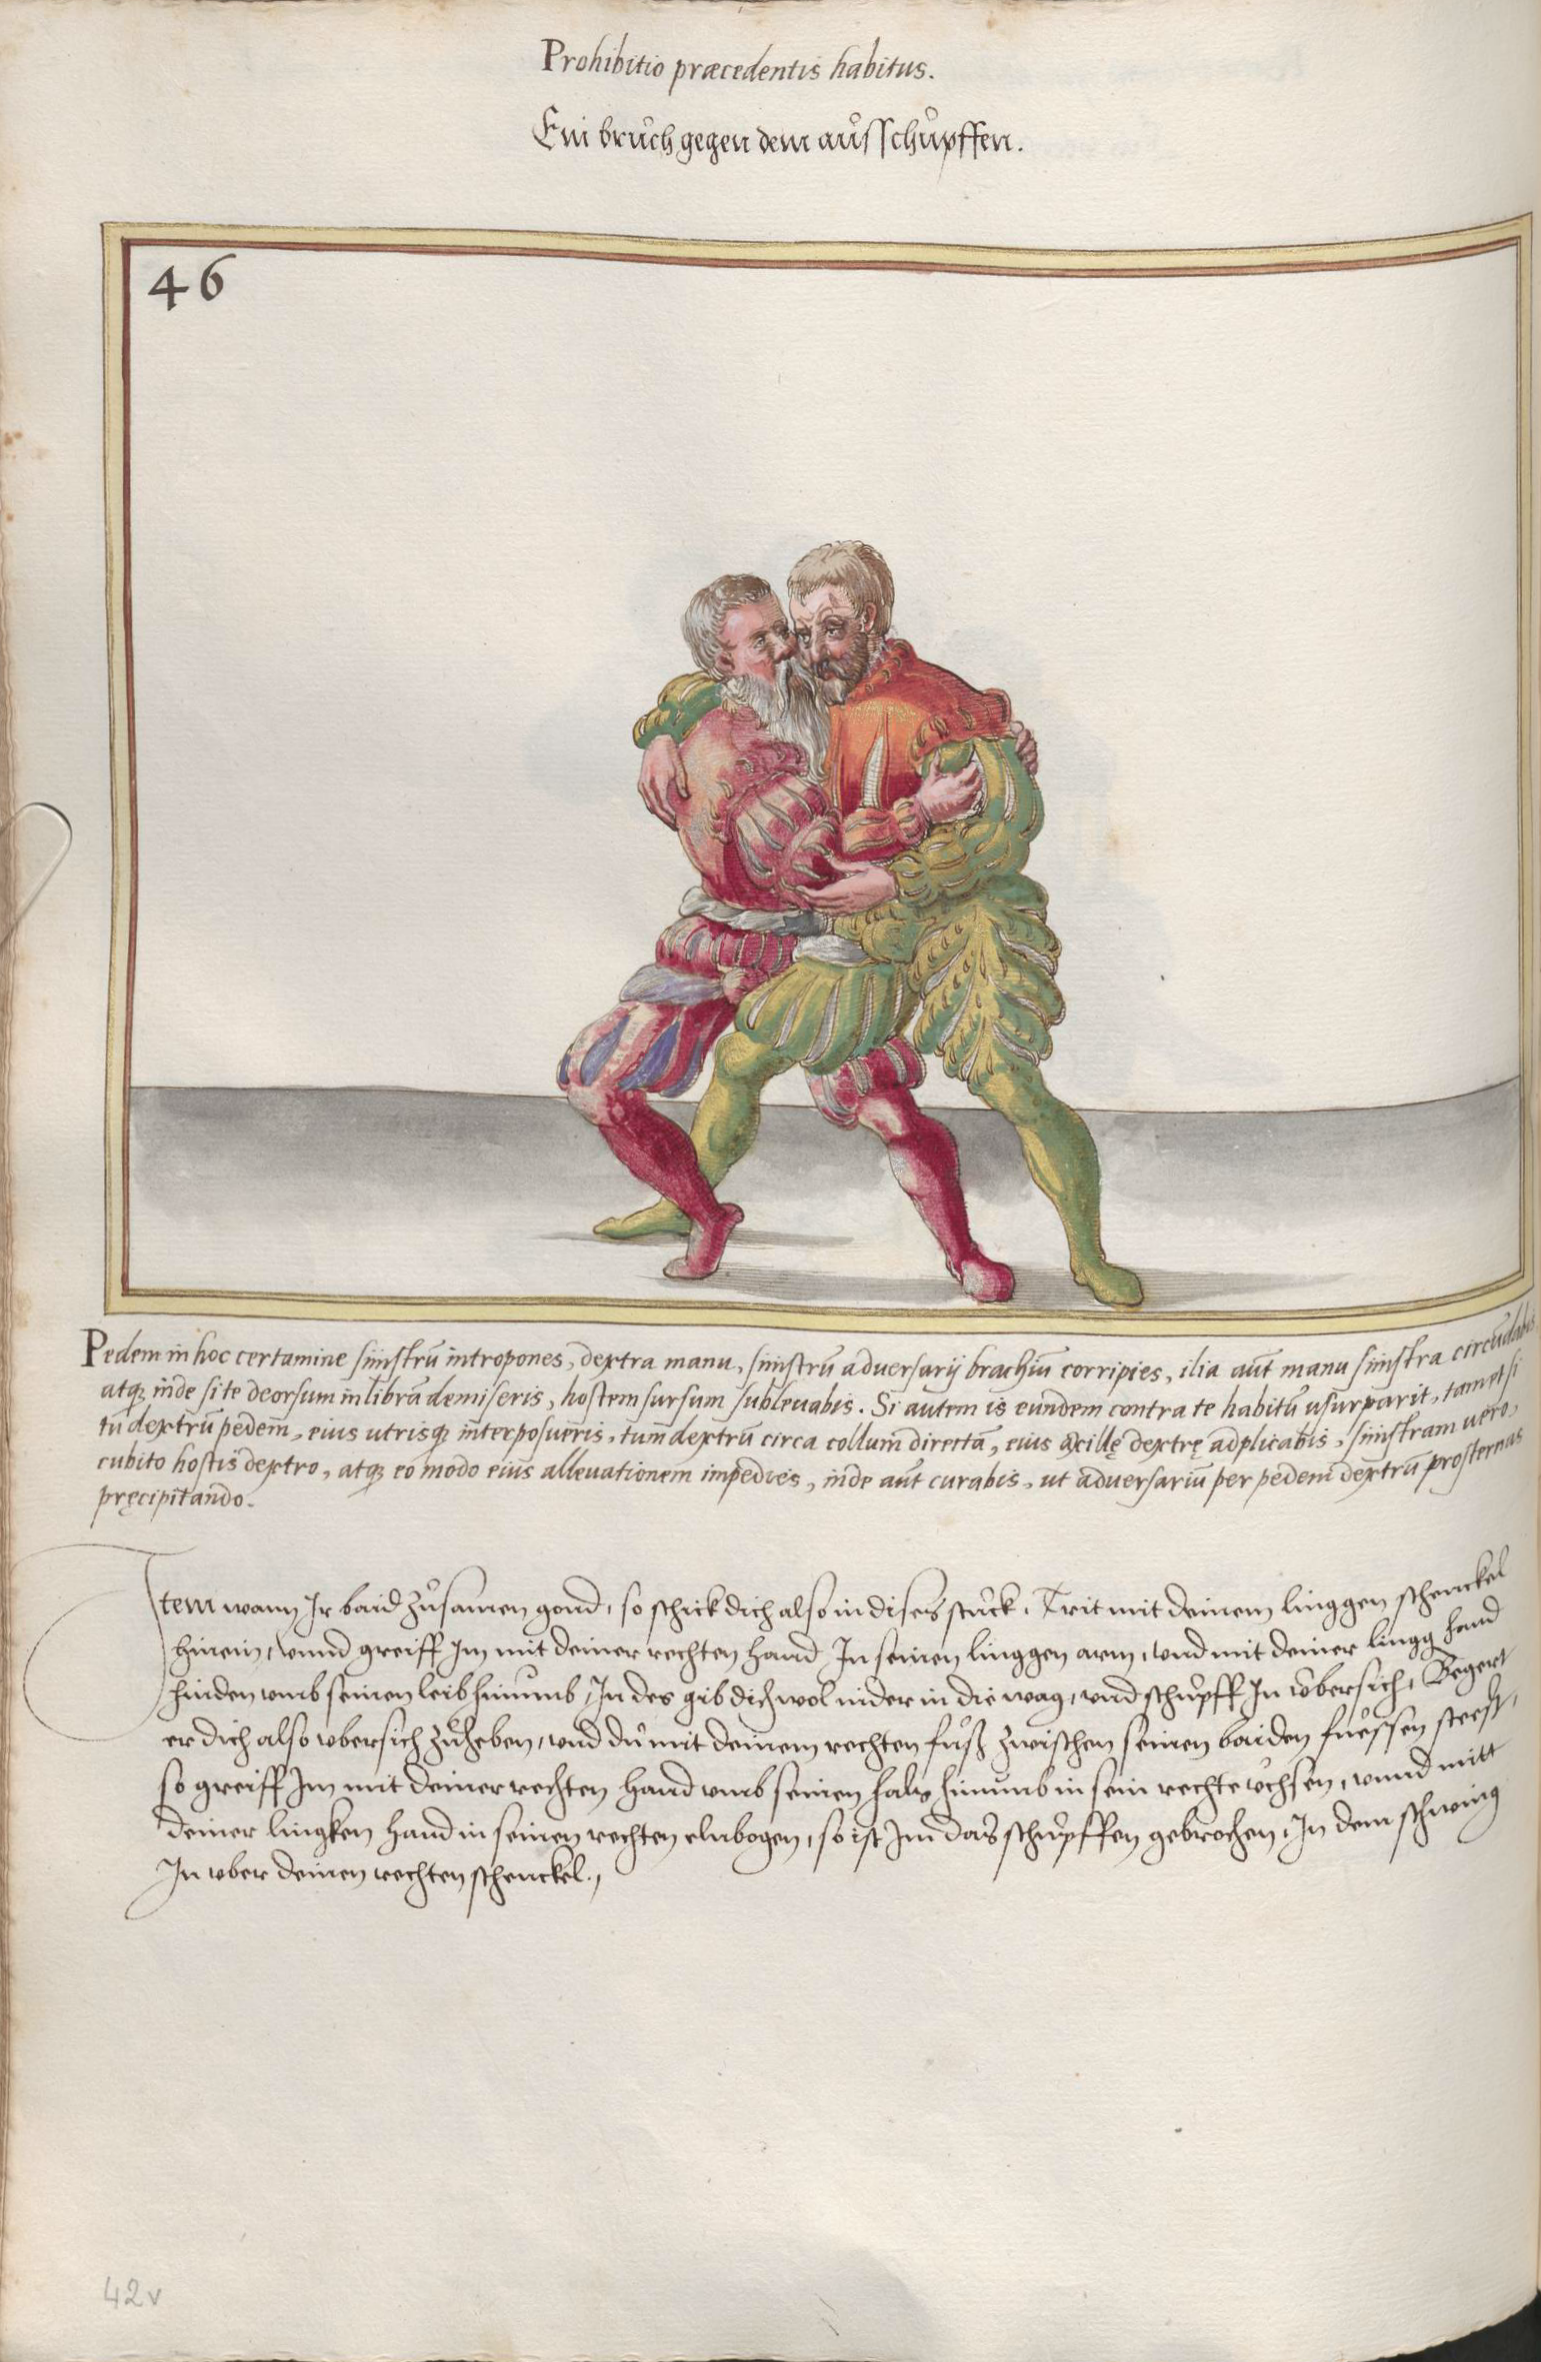 Prohibitio præcedentis habitus.
Ein bruͦch gegen dem auͦsschuͦpffen.
46
Pedem in hoc certamine sinistrū intropones, dextra manu, sinistrū adversarij brachiū corripies, ilia aūt manu sinistra circūdabis
atq; inde si te deorsum in librā demiseris, hostem sursum sublevabis. Si autem is eūndem contra te habitū usurparit, tametsi
tu dextrū pedem, eius utrisq; interposueris, tum dextrū circa collum directā, eius axillę dextrę adplicabis, sinistram vero,
cubito hostis dextro, atq; eo modo eius allevationem impedies, inde aūt curabis, ut adversariū per pedem dextrū prosternas
pręcipitando.
Item wann Ir baid zuͦsamen gond, so schick dich also in dises stuͦck, Trit mit deinem linggen schenckel
hinein, vnnd greiff Im mit deiner rechten hand In seinen linggen arm, vnd mit deiner lingg hand
hinden vmb seinen leib hinumb, In des gib dich wol nider in die wag, vnd schuͦpff In vbersich, Begert
er dich also vbersich zuͦheben, vnd duͦ mit deinem rechten fuͦß zwischen seinen baiden fuͦessen steest,
so greiff Im mit deiner rechten hand vmb seinen hals hinumb in sein rechte vͦchsen, vnnd mitt
deiner lingken hand in seinen rechten elnbogen, so ist Im das schuͦpffen gebrochen, In dem schwing
In vber deinen rechten schenckel.,
42v